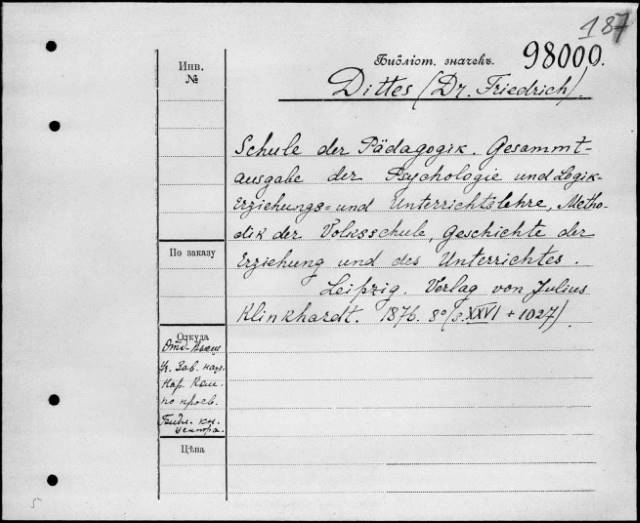 187
Инв.
№
Библіот. значекъ. 98000.
Dittes (Dr. Friedrich).
Schule der Pädagogik. Gesammt-
ausgabe der Psychologie und Logik-
Erziehungs= und Unterrichtslehre, Metho-
dik der Volksschule, Geschichte der
Erziehung und des Unterrichtes.
Leipzig. Verlag von Julius
Klinkhardt. 1876. 8° (s. XXVI + 1027)
По заказу
Откуда
Отд.
Уч. Зав. нар.
Нар. Ком.
по просв.
Библ. кол.
лектора.
Цѣна
5